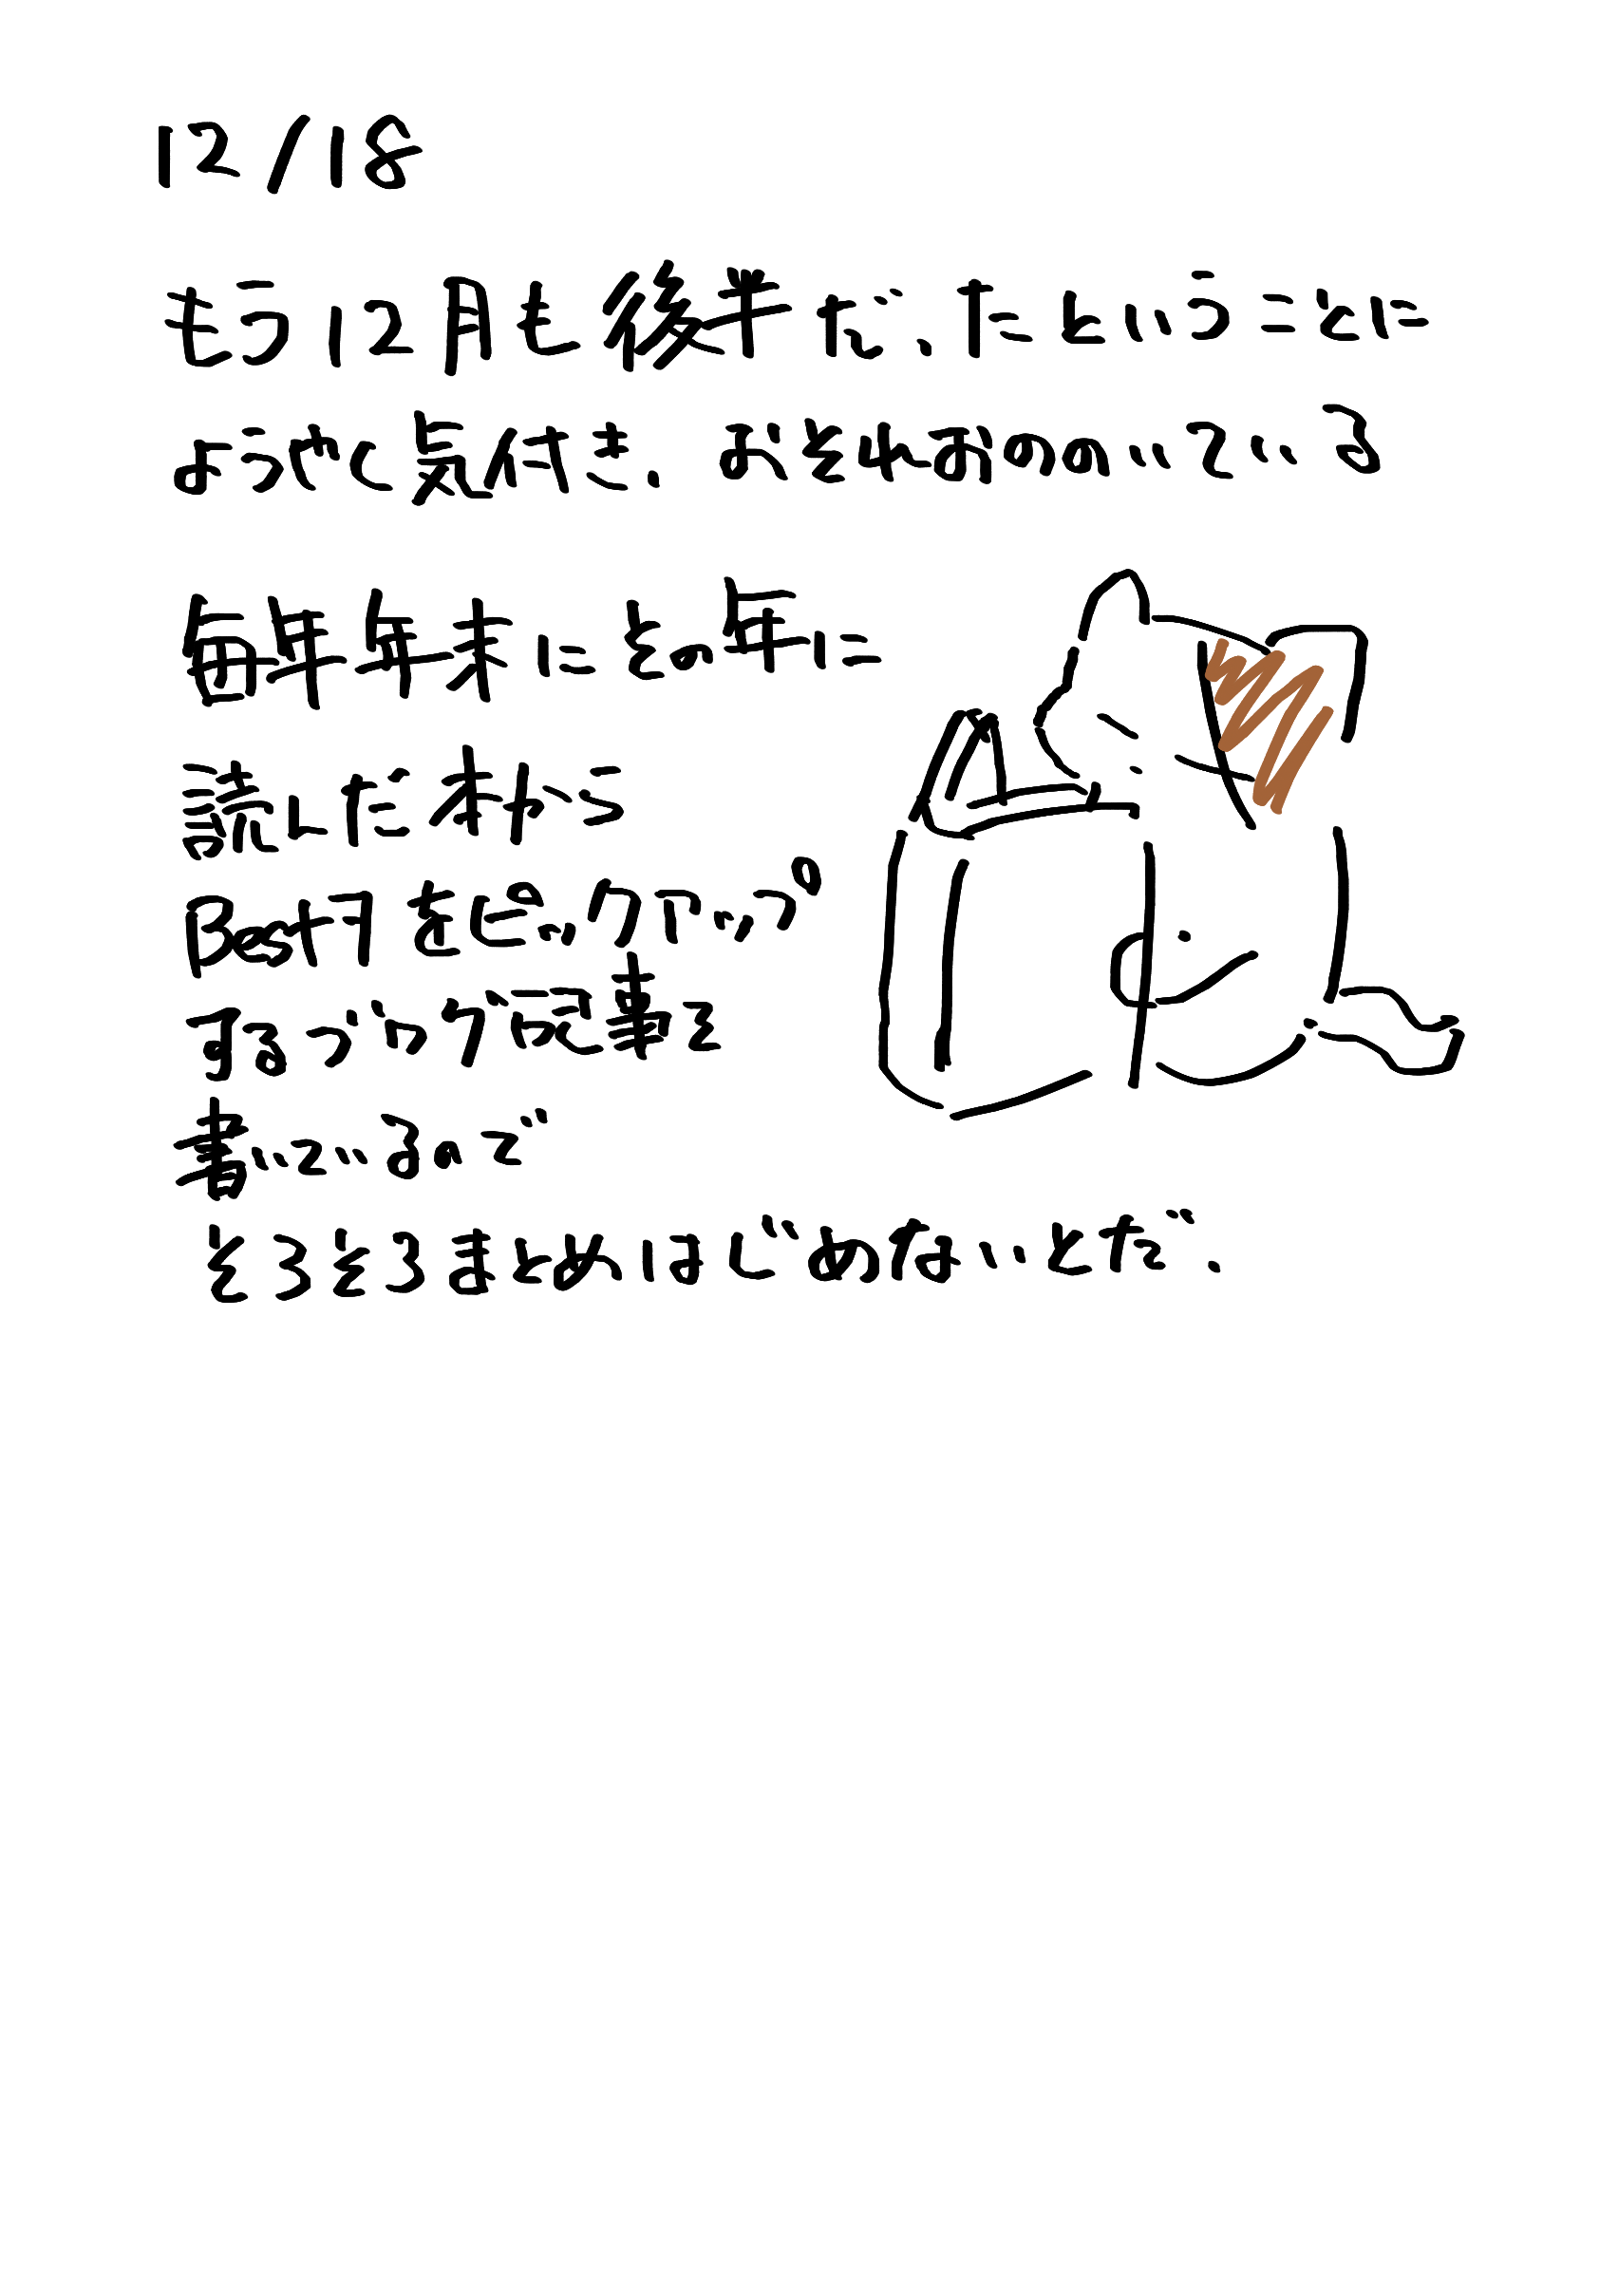 12/18
もう12月も後半だ、たということに
ようやく気付き、おそれおののいている
毎年年末にその年に
読んだ本から
Best7をピックアップ
するブログ記事を
書いているので
そろそろまとめはじめないとだ、